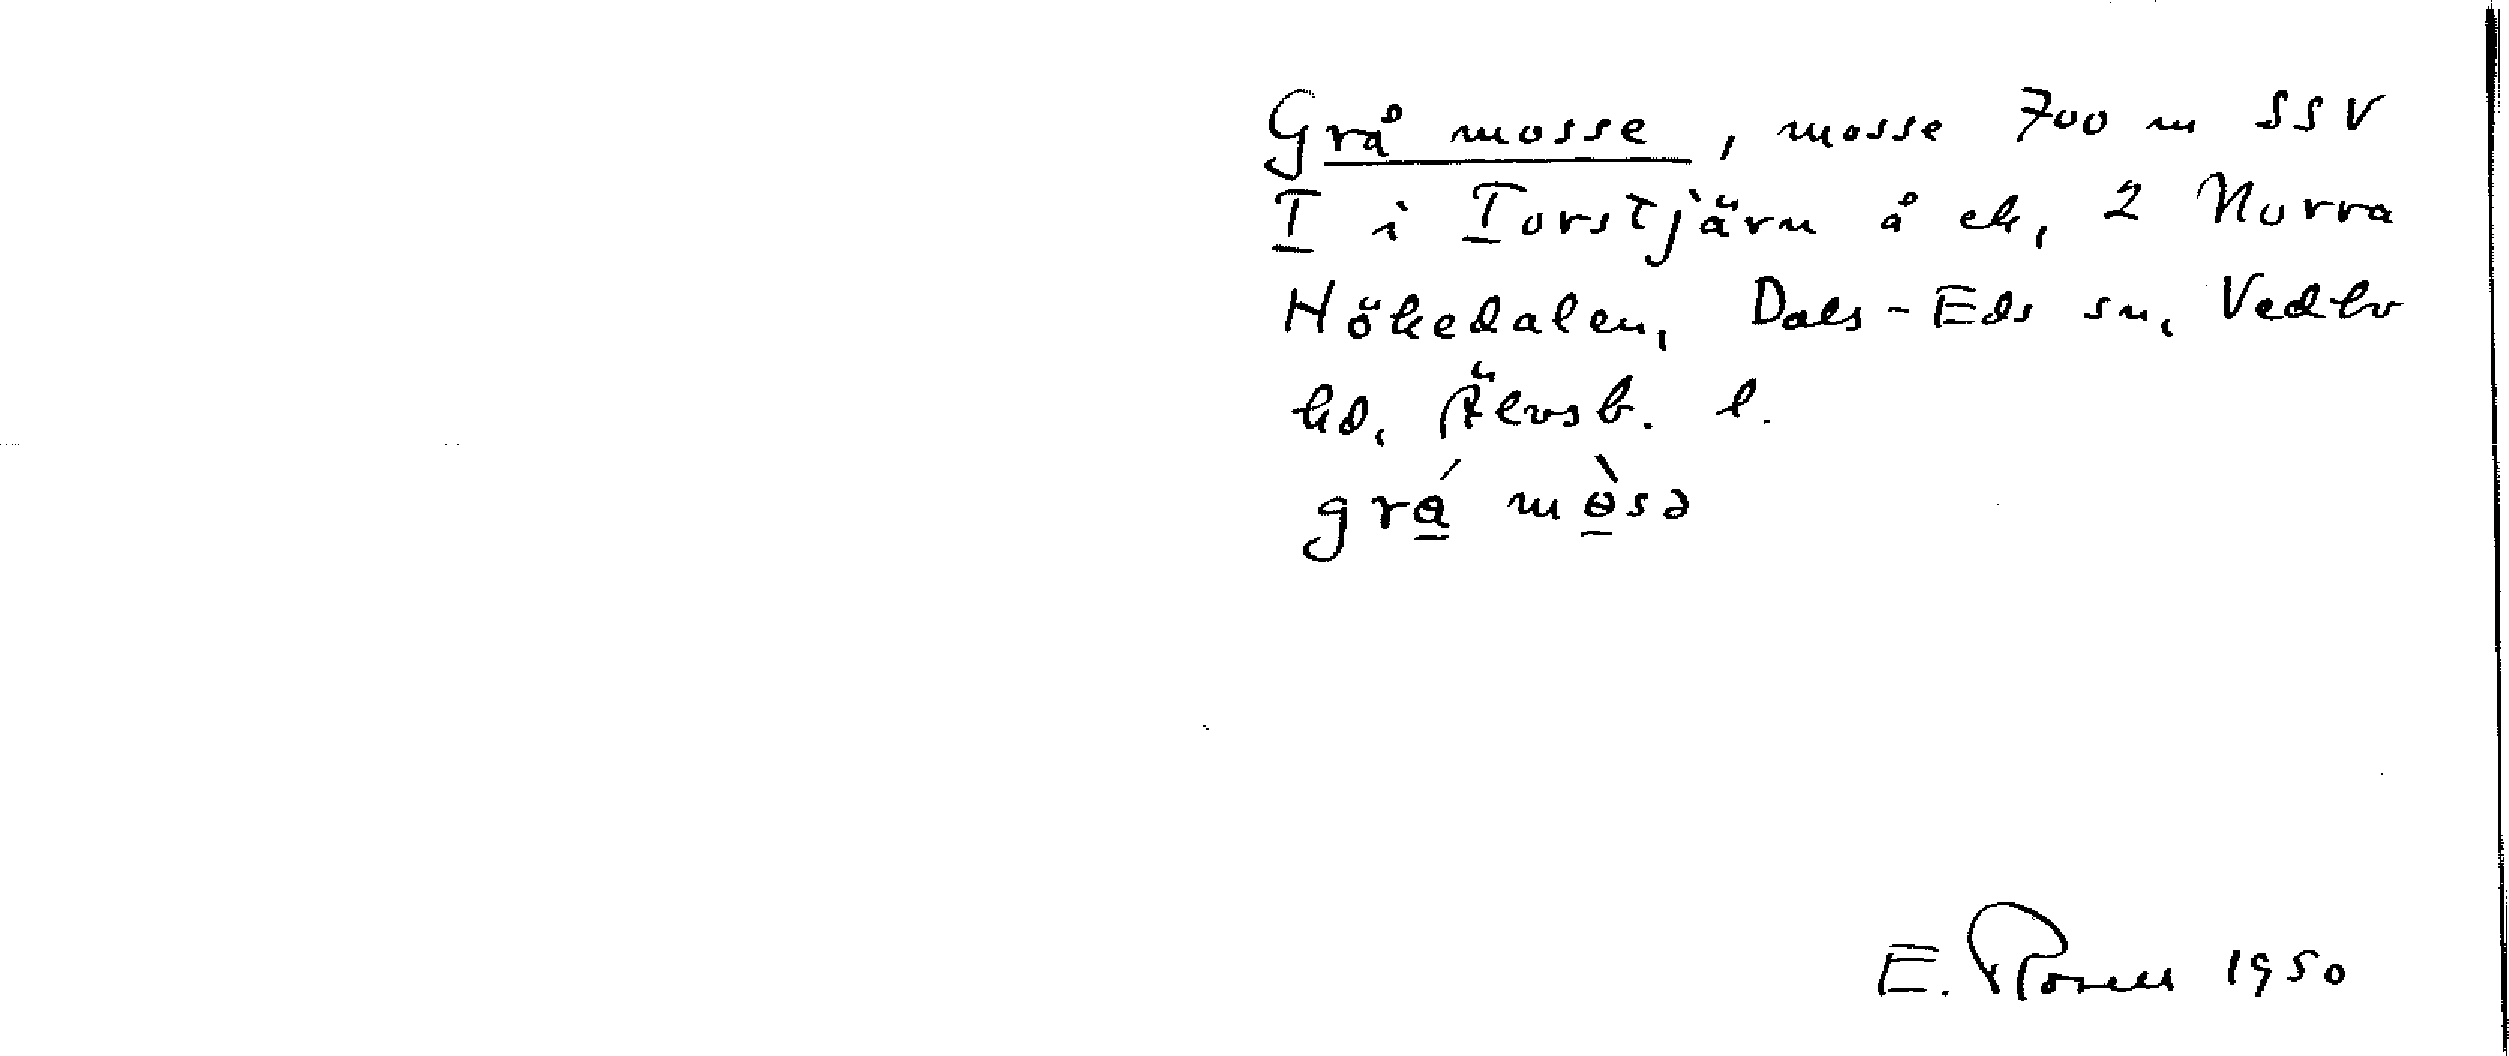 Grå mosse, mosse 700 m SSV
T i Torstjärn å ek, 2 Norra
Hökedalen, Dals-Eds sn, Vedbo
hd, Älvsb. l.
grá mòsə
E. Rosell 1950